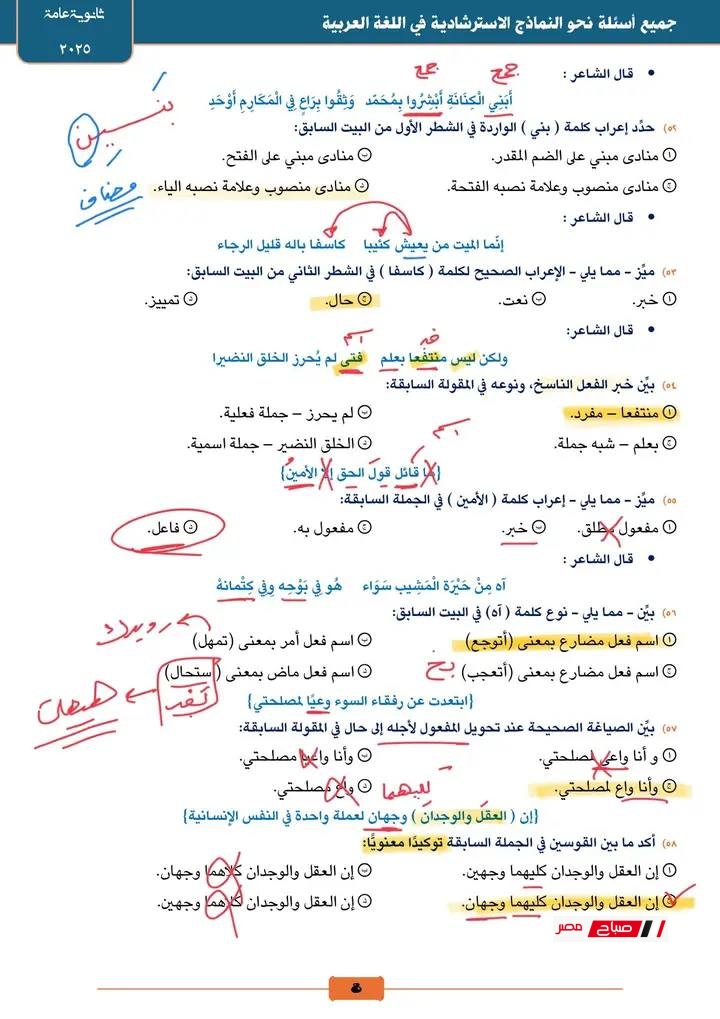 جميع أسئلة نحو النماذج الاسترشادية في اللغة العربية
ثانوية عامة
٢٠٢٥
• قال الشاعر :
جمع جمع
أَبَنِي الْكِنَانَةِ أَبْشِرُوا بِمُحَمَّد وَثِقُوا بِرَاعٍ فِي الْمَكَارِمِ أَوْحَدِ
٥٢) حدِّد إعراب كلمة ( بني ) الواردة في الشطر الأول من البيت السابق:
أ منادى مبني على الضم المقدر. ب منادى مبني على الفتح.
ج منادى منصوب وعلامة نصبه الفتحة. د منادى منصوب وعلامة نصبه الياء.
مضاف
• قال الشاعر :
إنّما الميت من يعيش كئيبا كاسفا باله قليل الرجاء
٥٣) ميِّز - مما يلي - الإعراب الصحيح لكلمة ( كاسفا ) في الشطر الثاني من البيت السابق:
أ خبر. ب نعت. ج حال. د تمييز.
• قال الشاعر:
خبر اسم
ولكن ليس منتفعا بعلم فتى لم يُحرز الخلق النضيرا
٥٤) بيِّن خبر الفعل الناسخ، ونوعه في المقولة السابقة:
أ منتفعا – مفرد. ب لم يحرز – جملة فعلية.
ج بعلم – شبه جملة. د الخلق النضير – جملة اسمية.
اسم
{ما قائل قولَ الحق إلا الأمينُ}
٥٥) ميِّز - مما يلي - إعراب كلمة ( الأمين ) في الجملة السابقة:
أ مفعول مطلق. ب خبر. ج مفعول به. د فاعل.
• قال الشاعر :
آه مِنْ حَيْرَة الْمَشِيب سَوَاء هُو فِي بَوْحِه وِفِي كِتْمانهْ
٥٦) بيِّن - مما يلي - نوع كلمة ( آه ) في البيت السابق:
رويدك
أ اسم فعل مضارع بمعنى (أتوجع) ب اسم فعل أمر بمعنى (تمهل)
ج اسم فعل مضارع بمعنى (أتعجب) د اسم فعل ماض بمعنى (استحال)
هيهات
{ابتعدت عن رفقاء السوء وعيًا لمصلحتي}
٥٧) بيِّن الصياغة الصحيحة عند تحويل المفعول لأجله إلى حال في المقولة السابقة:
أ و أنا واعي لمصلحتي. ب وأنا واعيا مصلحتي.
ج وأنا واع لمصلحتي. د واع مصلحتي.
كليهما
{إن ( العقلَ والوجدانَ ) وجهان لعملة واحدة في النفس الإنسانية}
٥٨) أكد ما بين القوسين في الجملة السابقة توكيدًا معنويًّا:
أ إن العقل والوجدان كليهما وجهين. ب إن العقل والوجدان كلاهما وجهان.
ج إن العقل والوجدان كليهما وجهان. د إن العقل والوجدان كلاهما وجهين.
صباح مصر